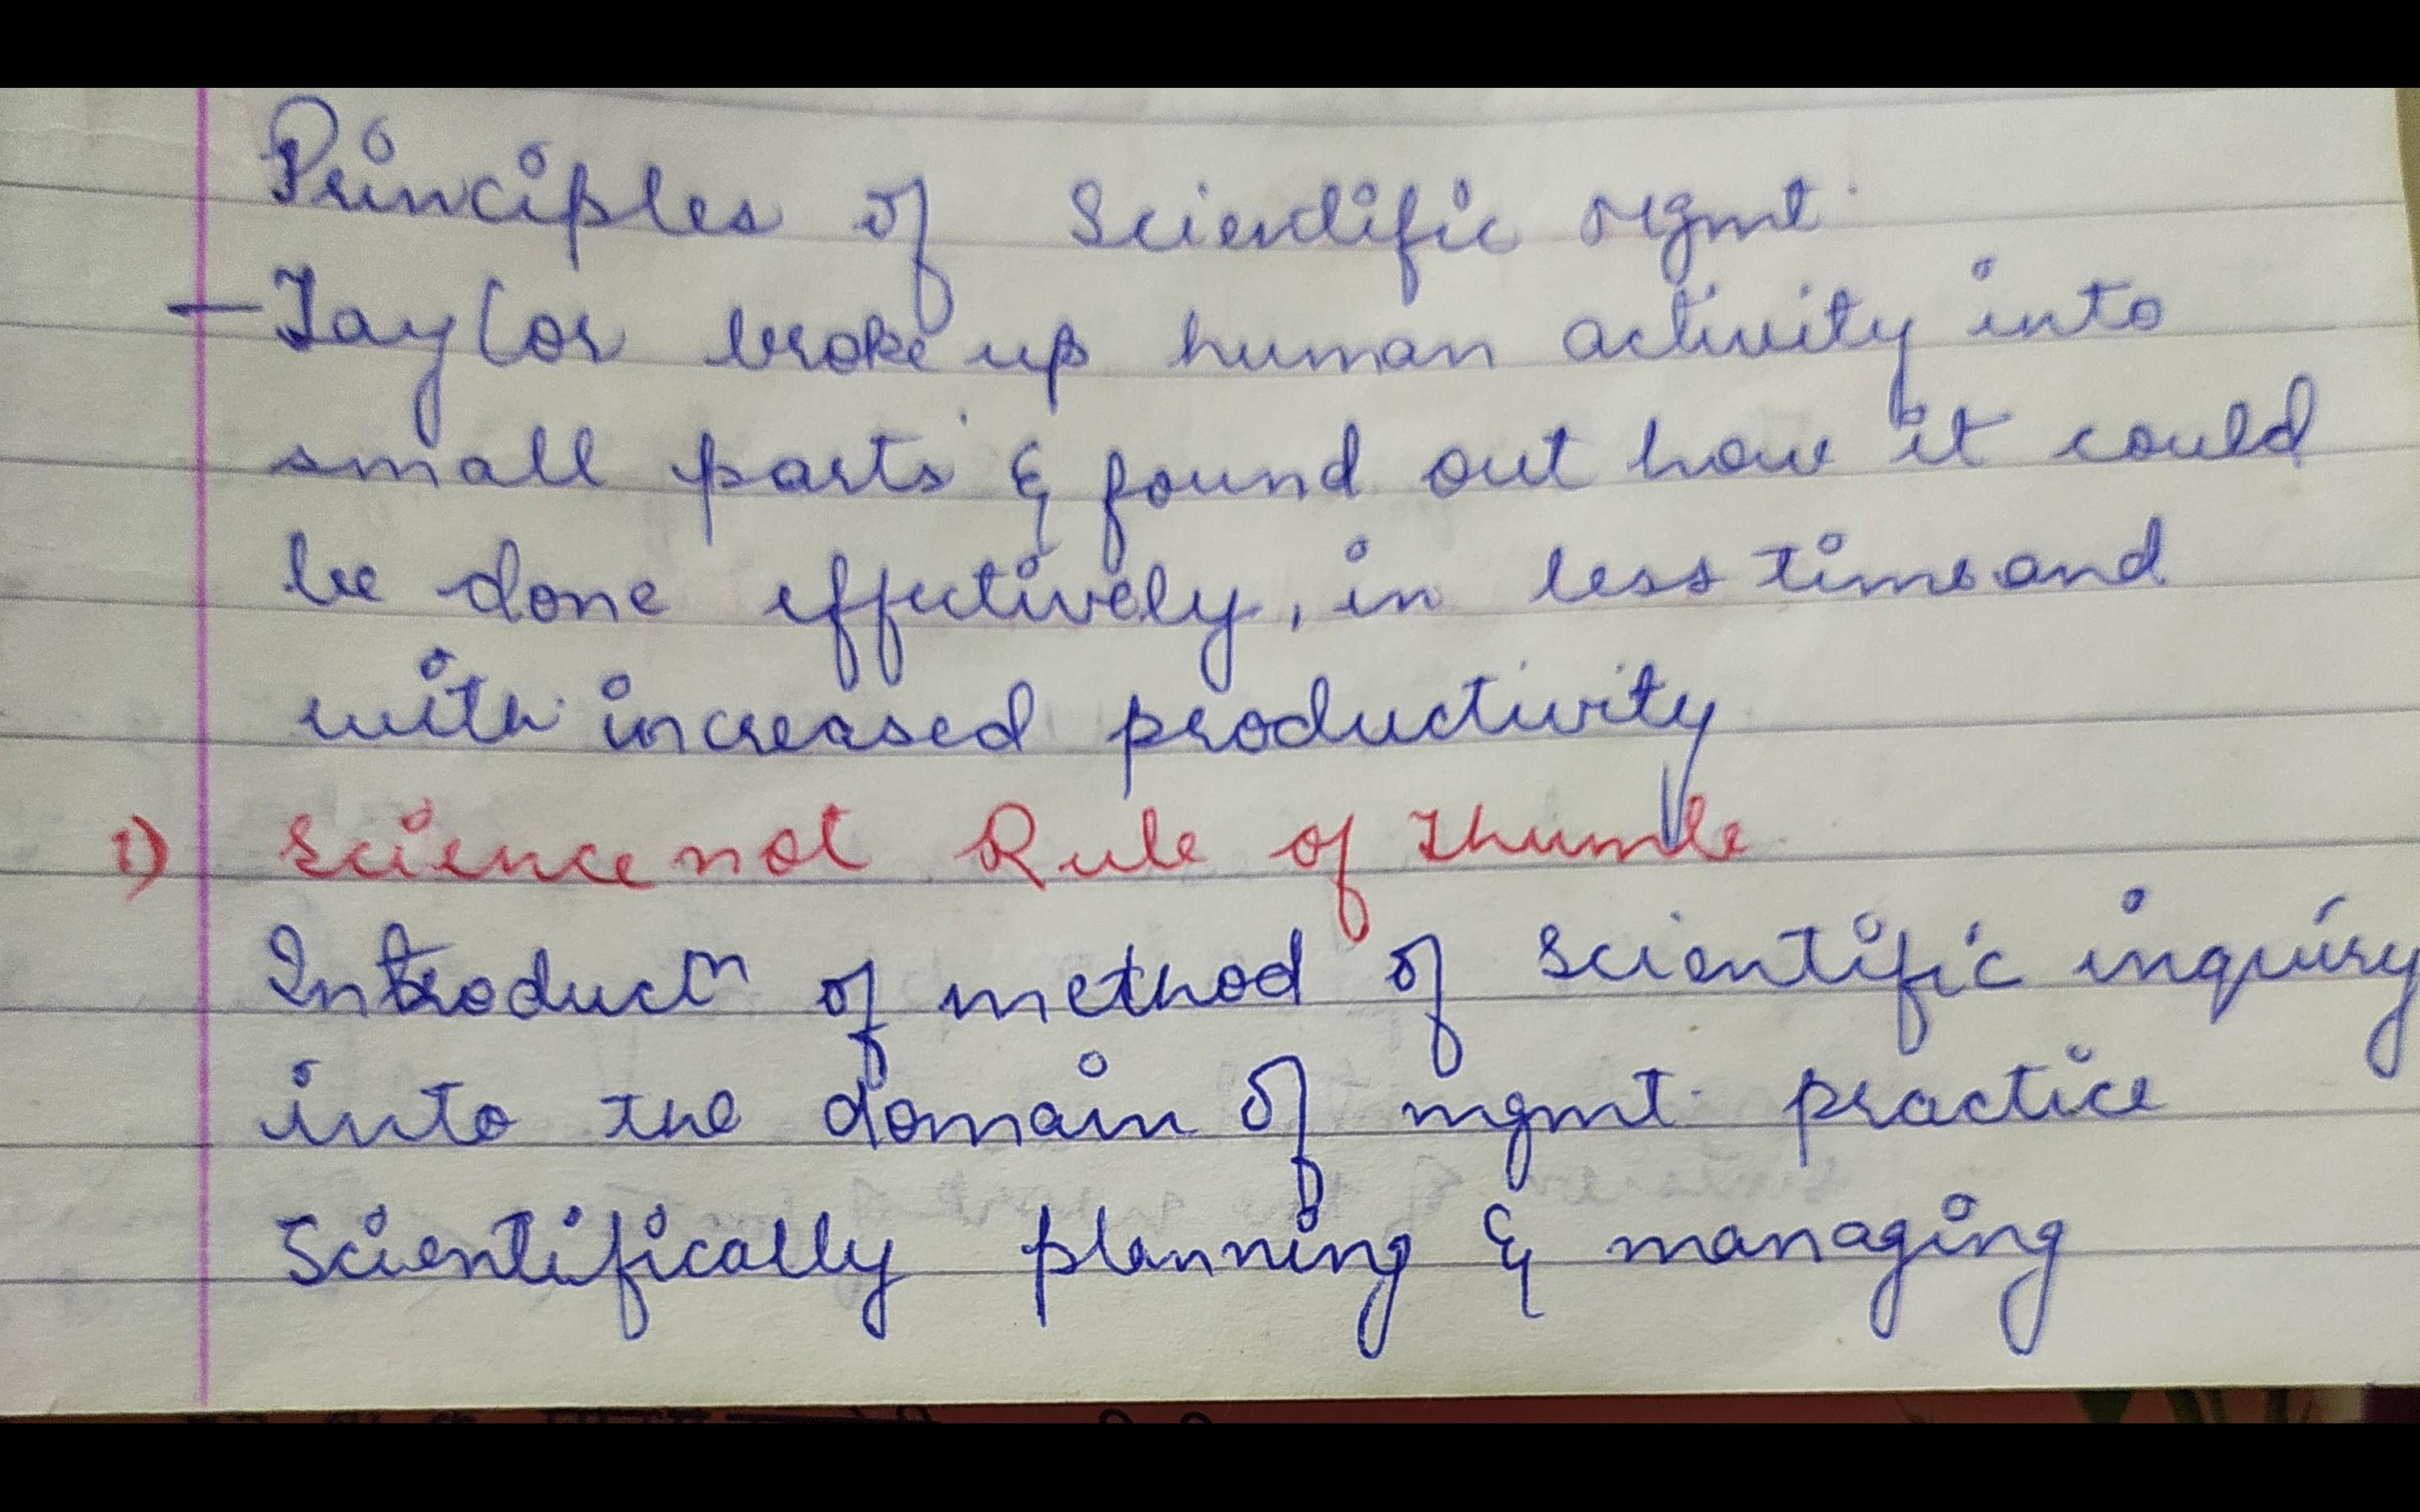 Principles of Scientific mgmt.
- Taylor broke up human activity into
small parts & found out how it could
be done effectively, in less time and
with increased productivity
1) Science not Rule of Thumb
Introductn of method of scientific inquiry
into the domain of mgmt. practice
Scientifically planning & managing